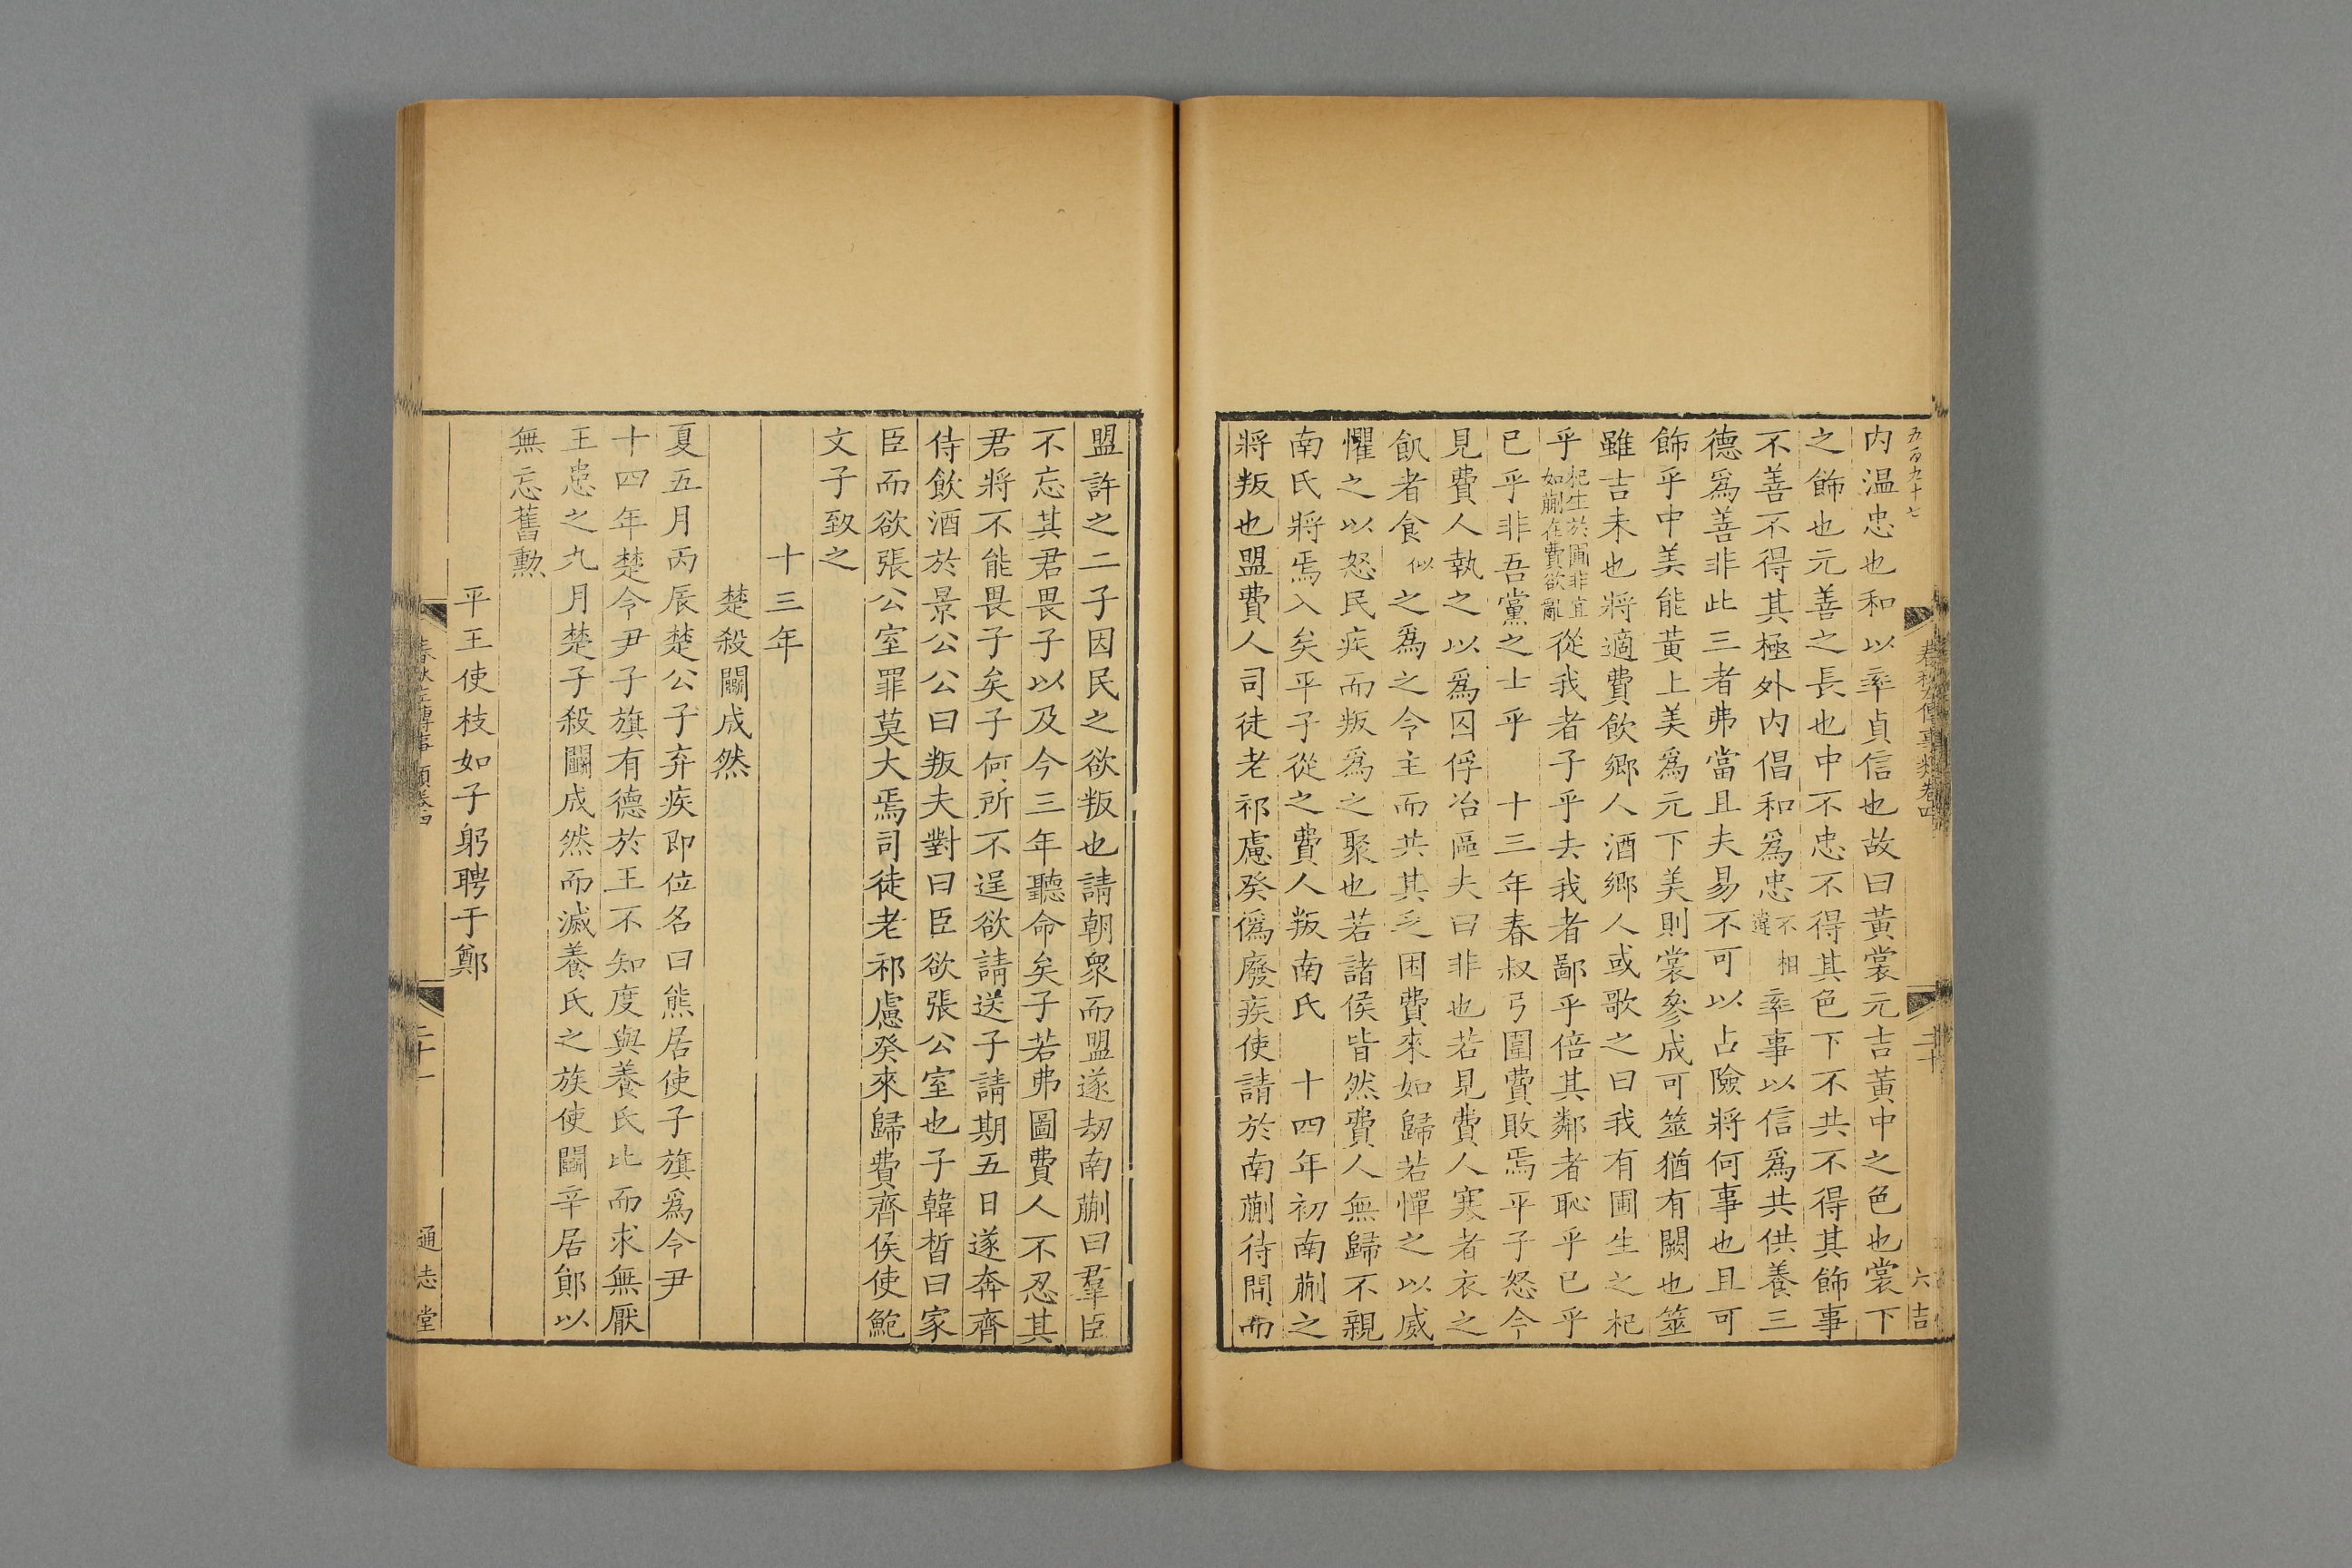 五百九十七
春秋左傳事類卷四
二十
六吉
内温忠也和以率貞信也故曰黃裳元吉黃中之色也裳下
之飾也元善之長也中不忠不得其色下不共不得其飾事
不善不得其極外内倡和爲忠不相違率事以信爲共供養三
德爲善非此三者弗當且夫易不可以占險將何事也且可
飾乎中美能黃上美爲元下美則裳參成可筮猶有闕也筮
雖吉未也將適費飲鄉人酒鄉人或歌之曰我有圃生之杞
乎杞生於圃非宜如蒯在費欲亂從我者子乎去我者鄙乎倍其鄰者恥乎已乎
已乎非吾黨之士乎　十三年春叔弓圍費敗焉平子怒令
見費人執之以爲囚俘冶區夫曰非也若見費人寒者衣之
飢者食似之爲之令主而共其乏困費來如歸若憚之以威
懼之以怒民疾而叛爲之聚也若諸侯皆然費人無歸不親
南氏將焉入矣平子從之費人叛南氏　十四年初南蒯之
將叛也盟費人司徒老祁慮癸僞廢疾使請於南蒯待間而
盟許之二子因民之欲叛也請朝衆而盟遂劫南蒯曰羣臣
不忘其君畏子以及今三年聽命矣子若弗圖費人不忍其
君將不能畏子矣子何所不逞欲請送子請期五日遂奔齊
侍飲酒於景公公曰叛夫對曰臣欲張公室也子韓晳曰家
臣而欲張公室罪莫大焉司徒老祁慮癸來歸費齊侯使鮑
文子致之
十三年
楚殺鬬成然
夏五月丙辰楚公子弃疾即位名曰熊居使子旗爲令尹
十四年楚令尹子旗有德於王不知度與養氏比而求無厭
王患之九月楚子殺鬬成然而滅養氏之族使鬬辛居鄖以
無忘舊勲
平王使枝如子躬聘于鄭
春秋左傳事類卷四
二十一
通志堂